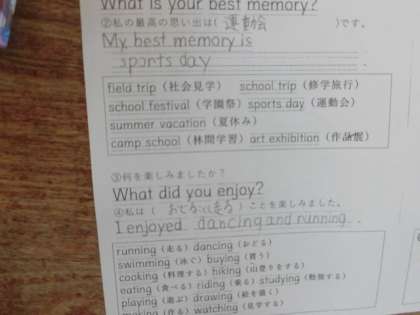 What is your best memory?
②私の最高の思い出は( 運動会 )です。
My best memory is
sports day
field trip (社会見学) school trip (修学旅行)
school festival (学園祭) sports day (運動会)
summer vacation (夏休み)
camp school (林間学習) art exhibition (作品展)
③何を楽しみましたか？
What did you enjoy?
④私は( おどると走る )ことを楽しみました。
I enjoyed dancing and running.
running (走る) dancing (おどる)
swimming (泳ぐ) buying (買う)
cooking (料理する) hiking (山登りをする)
eating (食べる) riding (乗る) studying (勉強する)
playing (遊ぶ) drawing (絵を描く)
making (作る) watching (見学する)